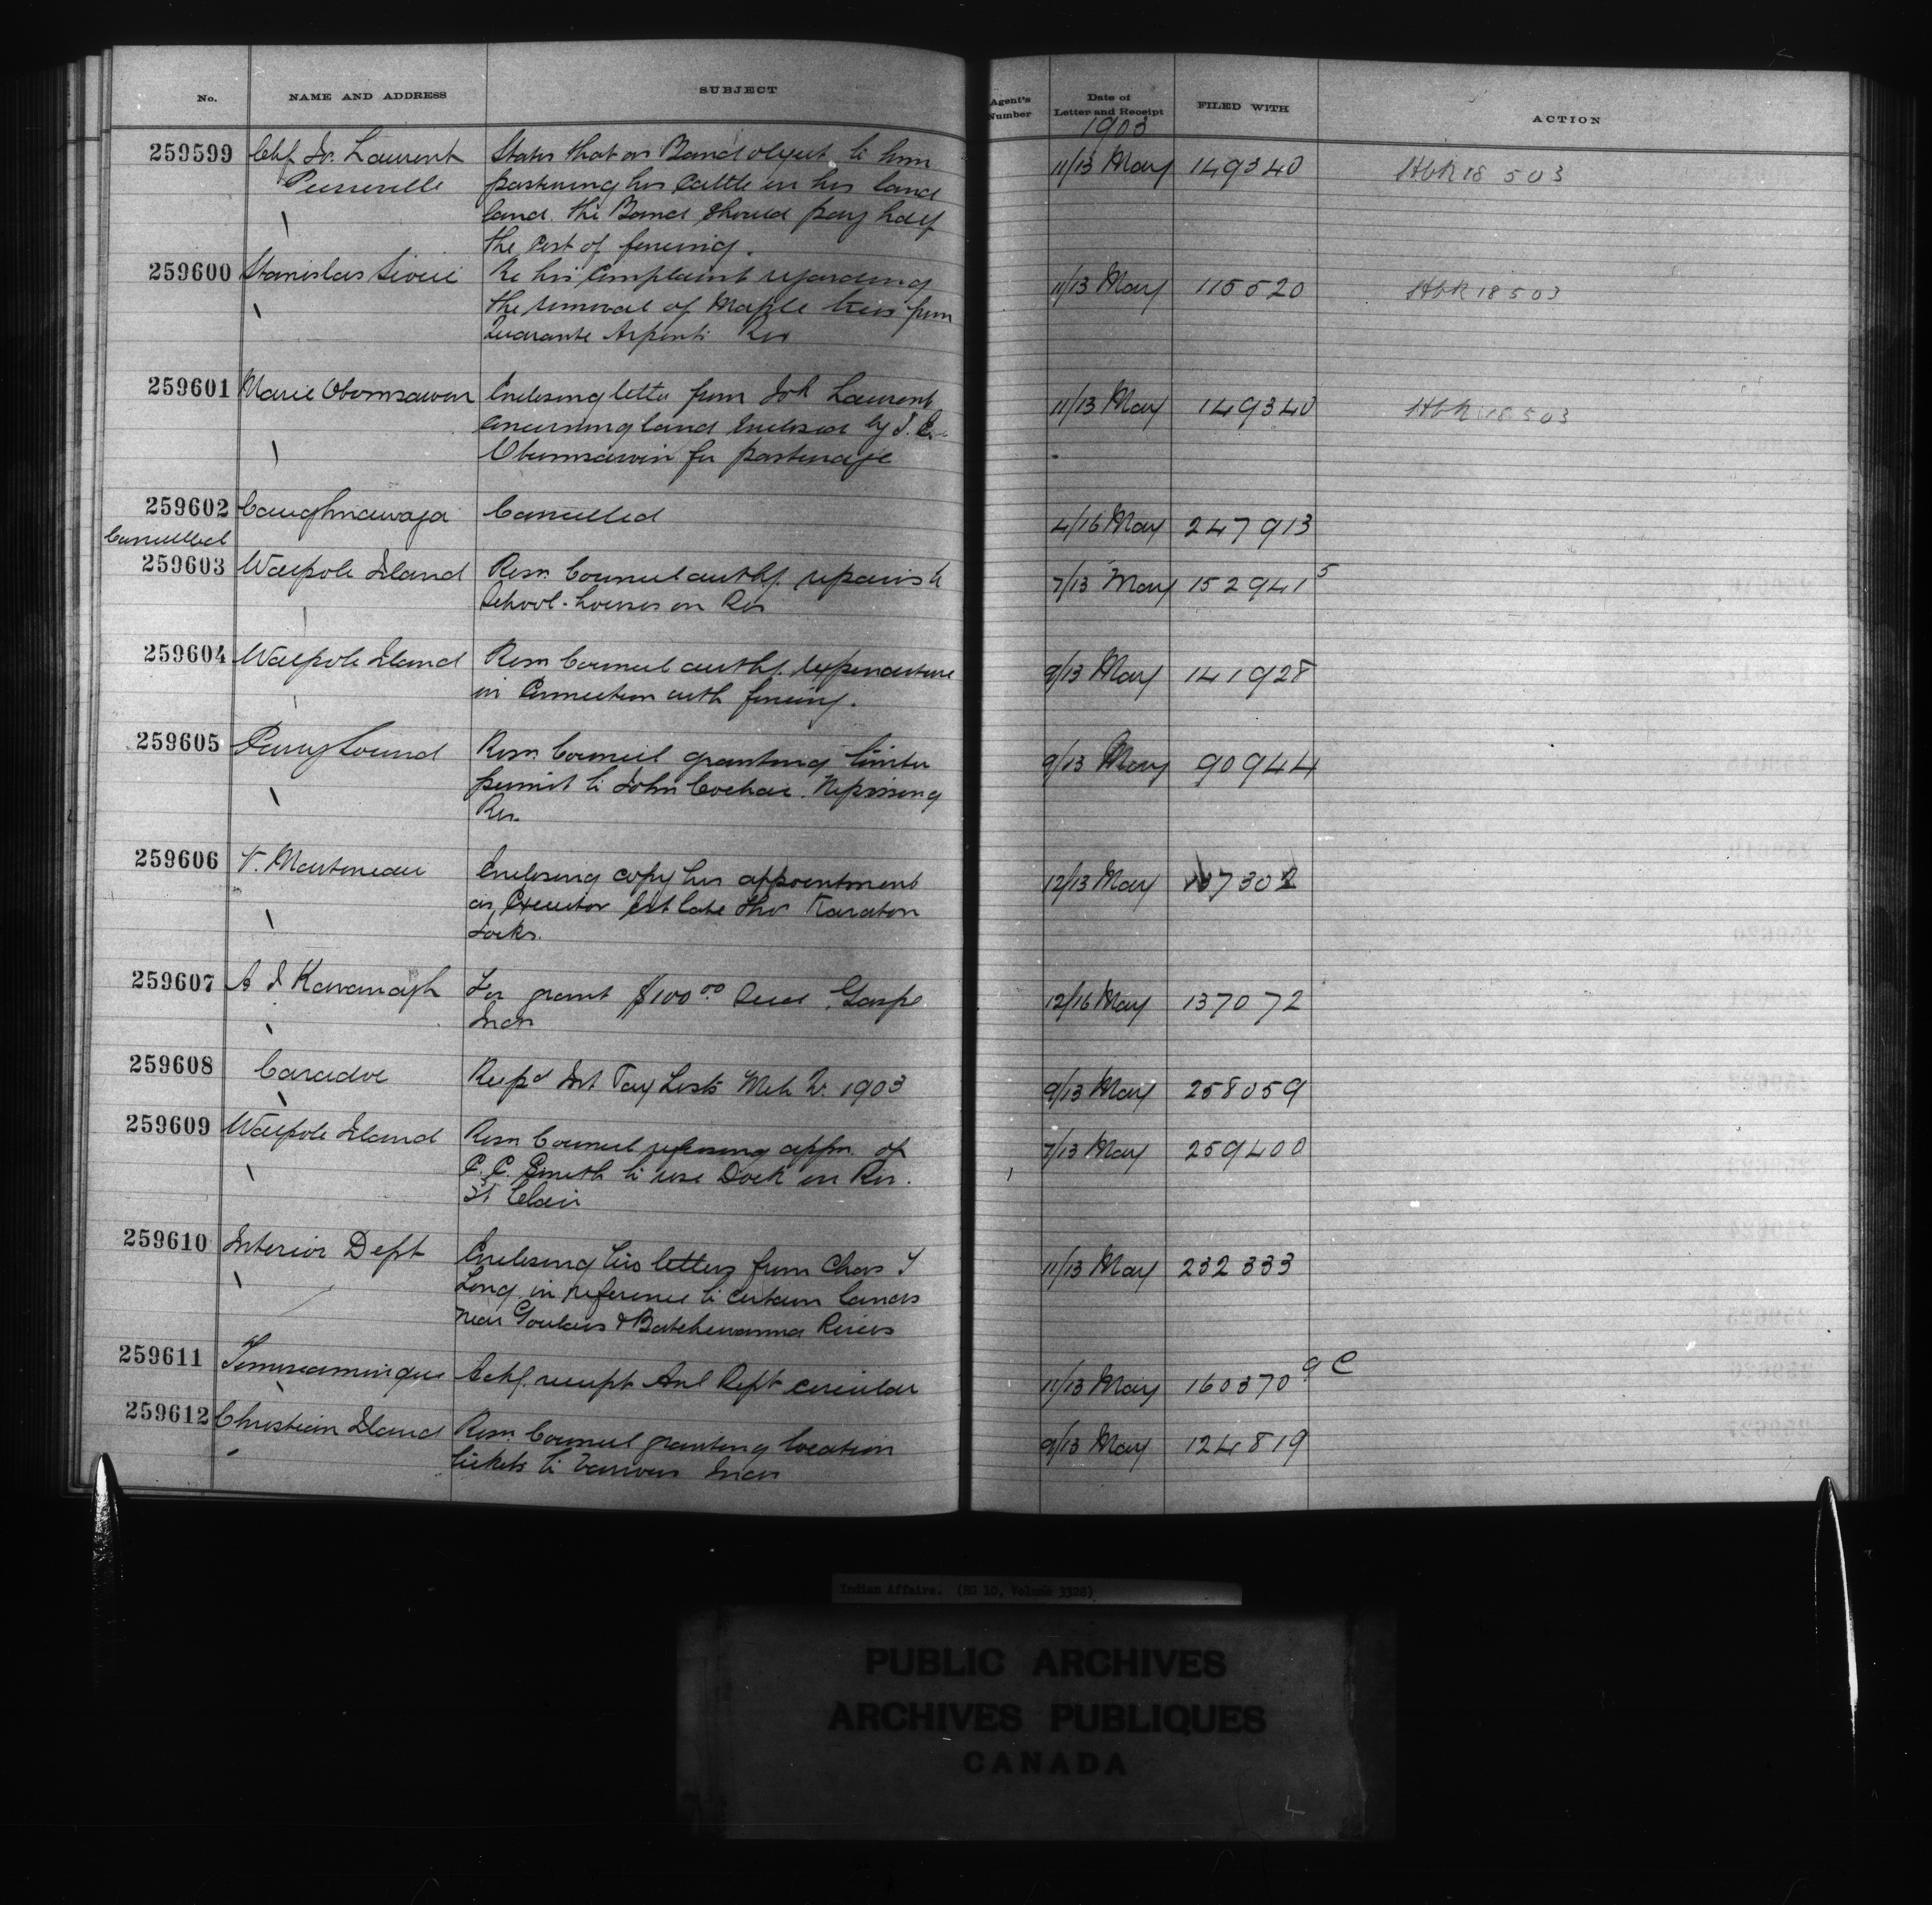 No. NAME AND ADDRESS SUBJECT Agent's Number Date of Letter and Receipt FILED WITH ACTION
1903
259599 Chf Jos. Laurent States that as Band object to him 11/13 May 149340 HbR 18 503
Pierreville pasturing his cattle on his land
land. the Band should pay half
the cost of fencing.
259600 Stanislas Re his Complaint regarding 11/13 May 115520 HbR 18 5 03
the removal of Maple trees from
Quarante Arpents Res
259601 Marie Obomsawin Enclosing letter from Jos Laurent 11/13 May 149340 HbR 18 5 03
Concerning land enclosed by
Obumsawin for pasturage
259602 Caughnawaga Cancelled 4/16 May 247913
Cancelled
259603 Walpole Island Resn. Council authg. repairs to 7/13 May 152941 5
School-houses on Res
259604 Walpole Island Resn Council authg. expenditure 9/13 May 141928
in Connection with fencing.
259605 Parry Sound Resn. Council granting timber 9/13 May 90944
permit to John Nipissing
Res.
259606 V. Martineau Enclosing copy his appointment 12/13 May
as Executor Est late Thos Karaton
259607 A J Kavanagh For grant $100.00 Seed Gaspe 12/16 May 137072
Inds
259608 Caradoc Int Pay Lists Mch Qr. 1903 9/13 May 258059
259609 Walpole Island Resn Council refusing appn. of 7/13 May 259400
C. C. Smith to use Dock on Riv.
St Clair
259610 Interior Dept Enclosing two letters from Chas 11/13 May 232333
Long in reference to certain lands
near Goulais & Batchewanna Rivers
259611 Temiscamingue Ackg. receipt Anl Rept circular 11/13 May 160370 9 C
259612 Christian Island Resn. Council granting location 9/13 May 124819
tickets to various Inds
Indian Affairs. (RG 10, Volume 3328)
PUBLIC ARCHIVES
ARCHIVES PUBLIQUES
CANADA